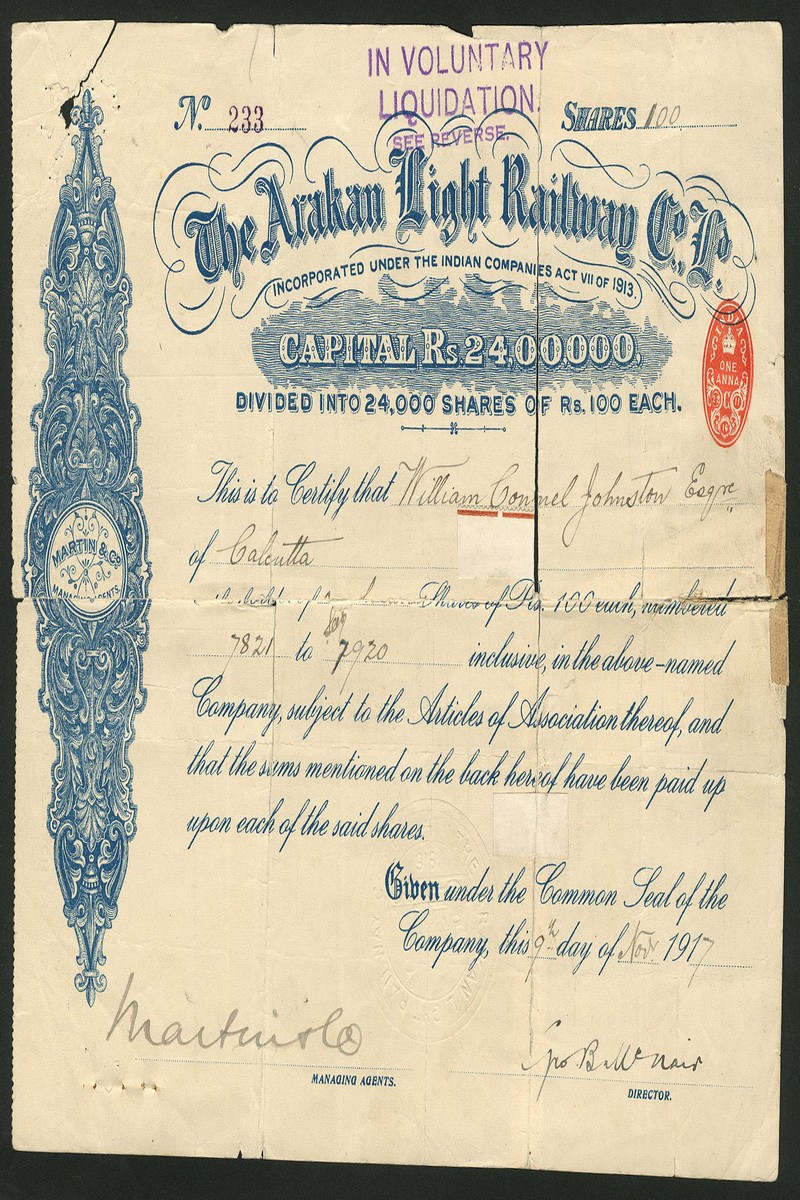 IN VOLUNTARY
LIQUIDATION.
SEE REVERSE.
No. 233
SHARES 100
The Arakan Light Railway Co., Ld.
INCORPORATED UNDER THE INDIAN COMPANIES ACT VII OF 1913.
CAPITAL Rs. 24,00,000,
DIVIDED INTO 24,000 SHARES OF Rs. 100 EACH.
INDIA
ONE
ANNA
This is to Certify that William Connel Johnston Esqre
of Calcutta
MARTIN & Co.
MANAGING AGENTS.
Shares of Rs. 100 each, numbered
7821 to 7920 inclusive, in the above-named
Company, subject to the Articles of Association thereof, and
that the sums mentioned on the back hereof have been paid up
upon each of the said shares.
Given under the Common Seal of the
Company, this 9th day of Novr 1917
Martin & Co
MANAGING AGENTS.
DIRECTOR.